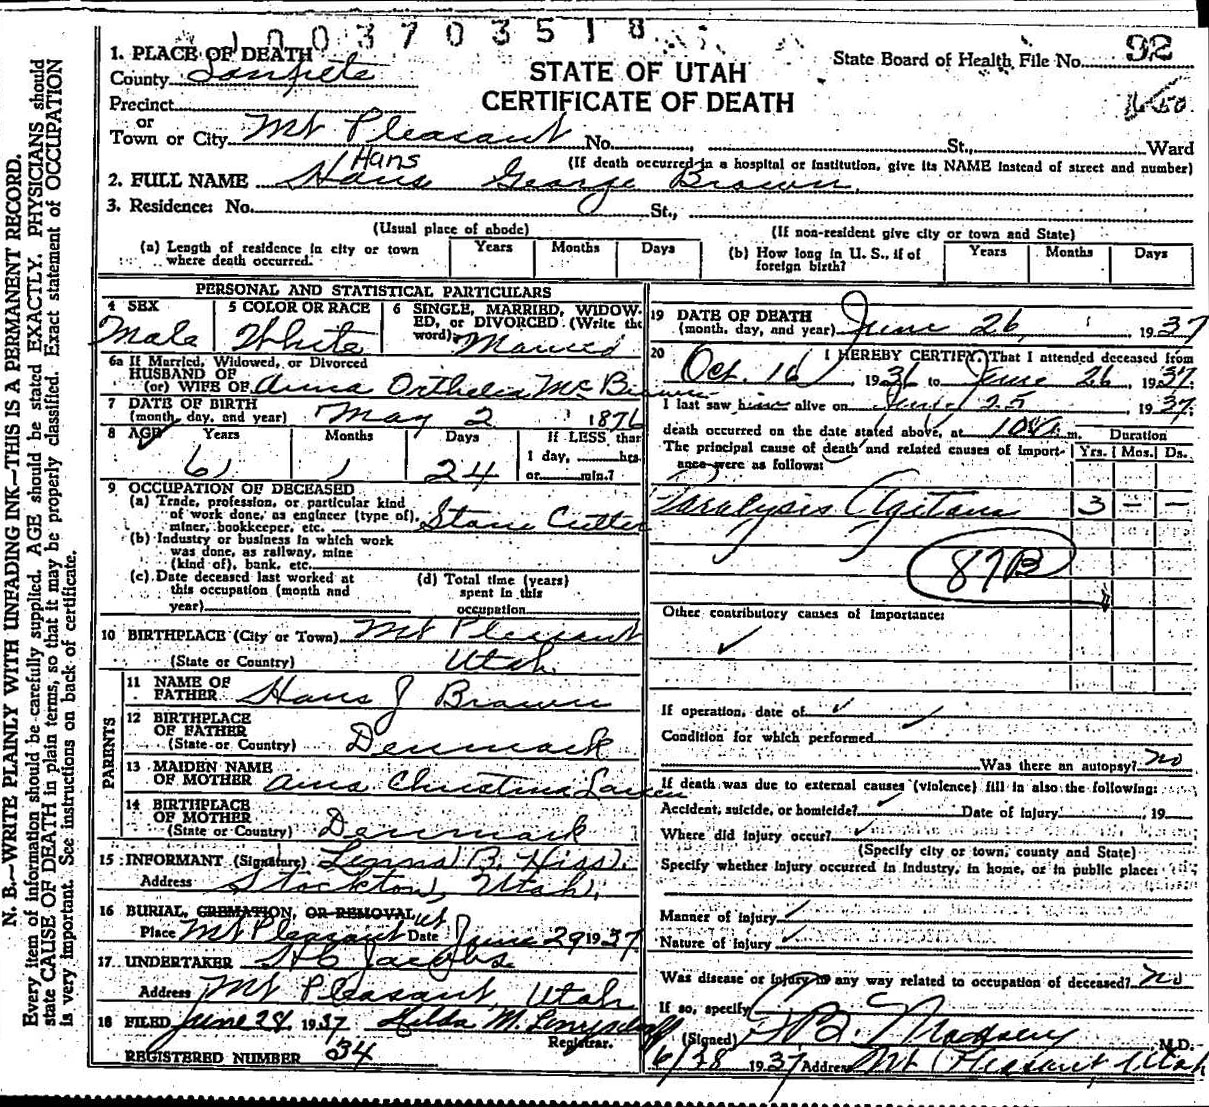 1003703518
1. PLACE OF DEATH
County Sanpete
State Board of Health File No. 92
STATE OF UTAH
CERTIFICATE OF DEATH
Precinct
or
Town or City Mt Pleasant No. St., Ward
(If death occurred in a hospital or institution, give its NAME instead of street and number)
Hans
2. FULL NAME Hans George Brown
3. Residence: No. St.,
(Usual place of abode) (If non-resident give city or town and State)
(a) Length of residence in city or town where death occurred. Years Months Days
(b) How long in U. S., if of foreign birth? Years Months Days
PERSONAL AND STATISTICAL PARTICULARS
4 SEX Male
5 COLOR OR RACE White
6 SINGLE, MARRIED, WIDOWED, or DIVORCED (Write the word) Married
6a If Married, Widowed, or Divorced
HUSBAND OF
(or) WIFE OF Anna Orthelia Mc Brown
7 DATE OF BIRTH
(month, day, and year) May 2 1876
8 AGE Years Months Days If LESS than
61 1 24 1 day, hrs.
or min.?
9 OCCUPATION OF DECEASED
(a) Trade, profession, or particular kind
of work done, as engineer (type of),
miner, bookkeeper, etc. Stone Cutter
(b) Industry or business in which work
was done, as railway, mine
(kind of), bank, etc.
(c) Date deceased last worked at
this occupation (month and
year)
(d) Total time (years)
spent in this
occupation
10 BIRTHPLACE (City or Town) Mt Pleasant
(State or Country) Utah
PARENTS
11 NAME OF
FATHER Hans J Brown
12 BIRTHPLACE
OF FATHER
(State or Country) Denmark
13 MAIDEN NAME
OF MOTHER Ana Christina Larsen
14 BIRTHPLACE
OF MOTHER
(State or Country) Denmark
15 INFORMANT (Signature) B. Hiss
Address Stockton, Utah.
16 BURIAL, CREMATION, OR REMOVAL
Place Mt Pleasant Ut Date June 29 1937
17 UNDERTAKER Jacobs
Address Mt Pleasant, Utah
18 FILED June 28 1937 Hilda M.
Registrar.
REGISTERED NUMBER 34
19 DATE OF DEATH
(month, day, and year) June 26, 1937
20 I HEREBY CERTIFY, That I attended deceased from
Oct. 16, 1936 to June 26, 1937.
I last saw him alive on June 25 1937.
death occurred on the date stated above, at m.
The principal cause of death and related causes of importance were as follows:
Duration
Yrs. Mos. Ds.
Paralysis Agitans 3 - -
87B
Other contributory causes of importance:
If operation, date of
Condition for which performed
Was there an autopsy? no
If death was due to external causes (violence) fill in also the following:
Accident, suicide, or homicide? Date of injury , 19
Where did injury occur?
(Specify city or town, county and State)
Specify whether injury occurred in industry, in home, or in public place:
Manner of injury
Nature of injury
Was disease or injury in any way related to occupation of deceased? no
If so, specify
(Signed) M.D.
6/28 1937 Address Mt Pleasant, Utah
N. B.—WRITE PLAINLY WITH UNFADING INK—THIS IS A PERMANENT RECORD.
Every item of information should be carefully supplied. AGE should be stated EXACTLY. PHYSICIANS should
state CAUSE OF DEATH in plain terms, so that it may be properly classified. Exact statement of OCCUPATION
is very important. See instructions on back of certificate.